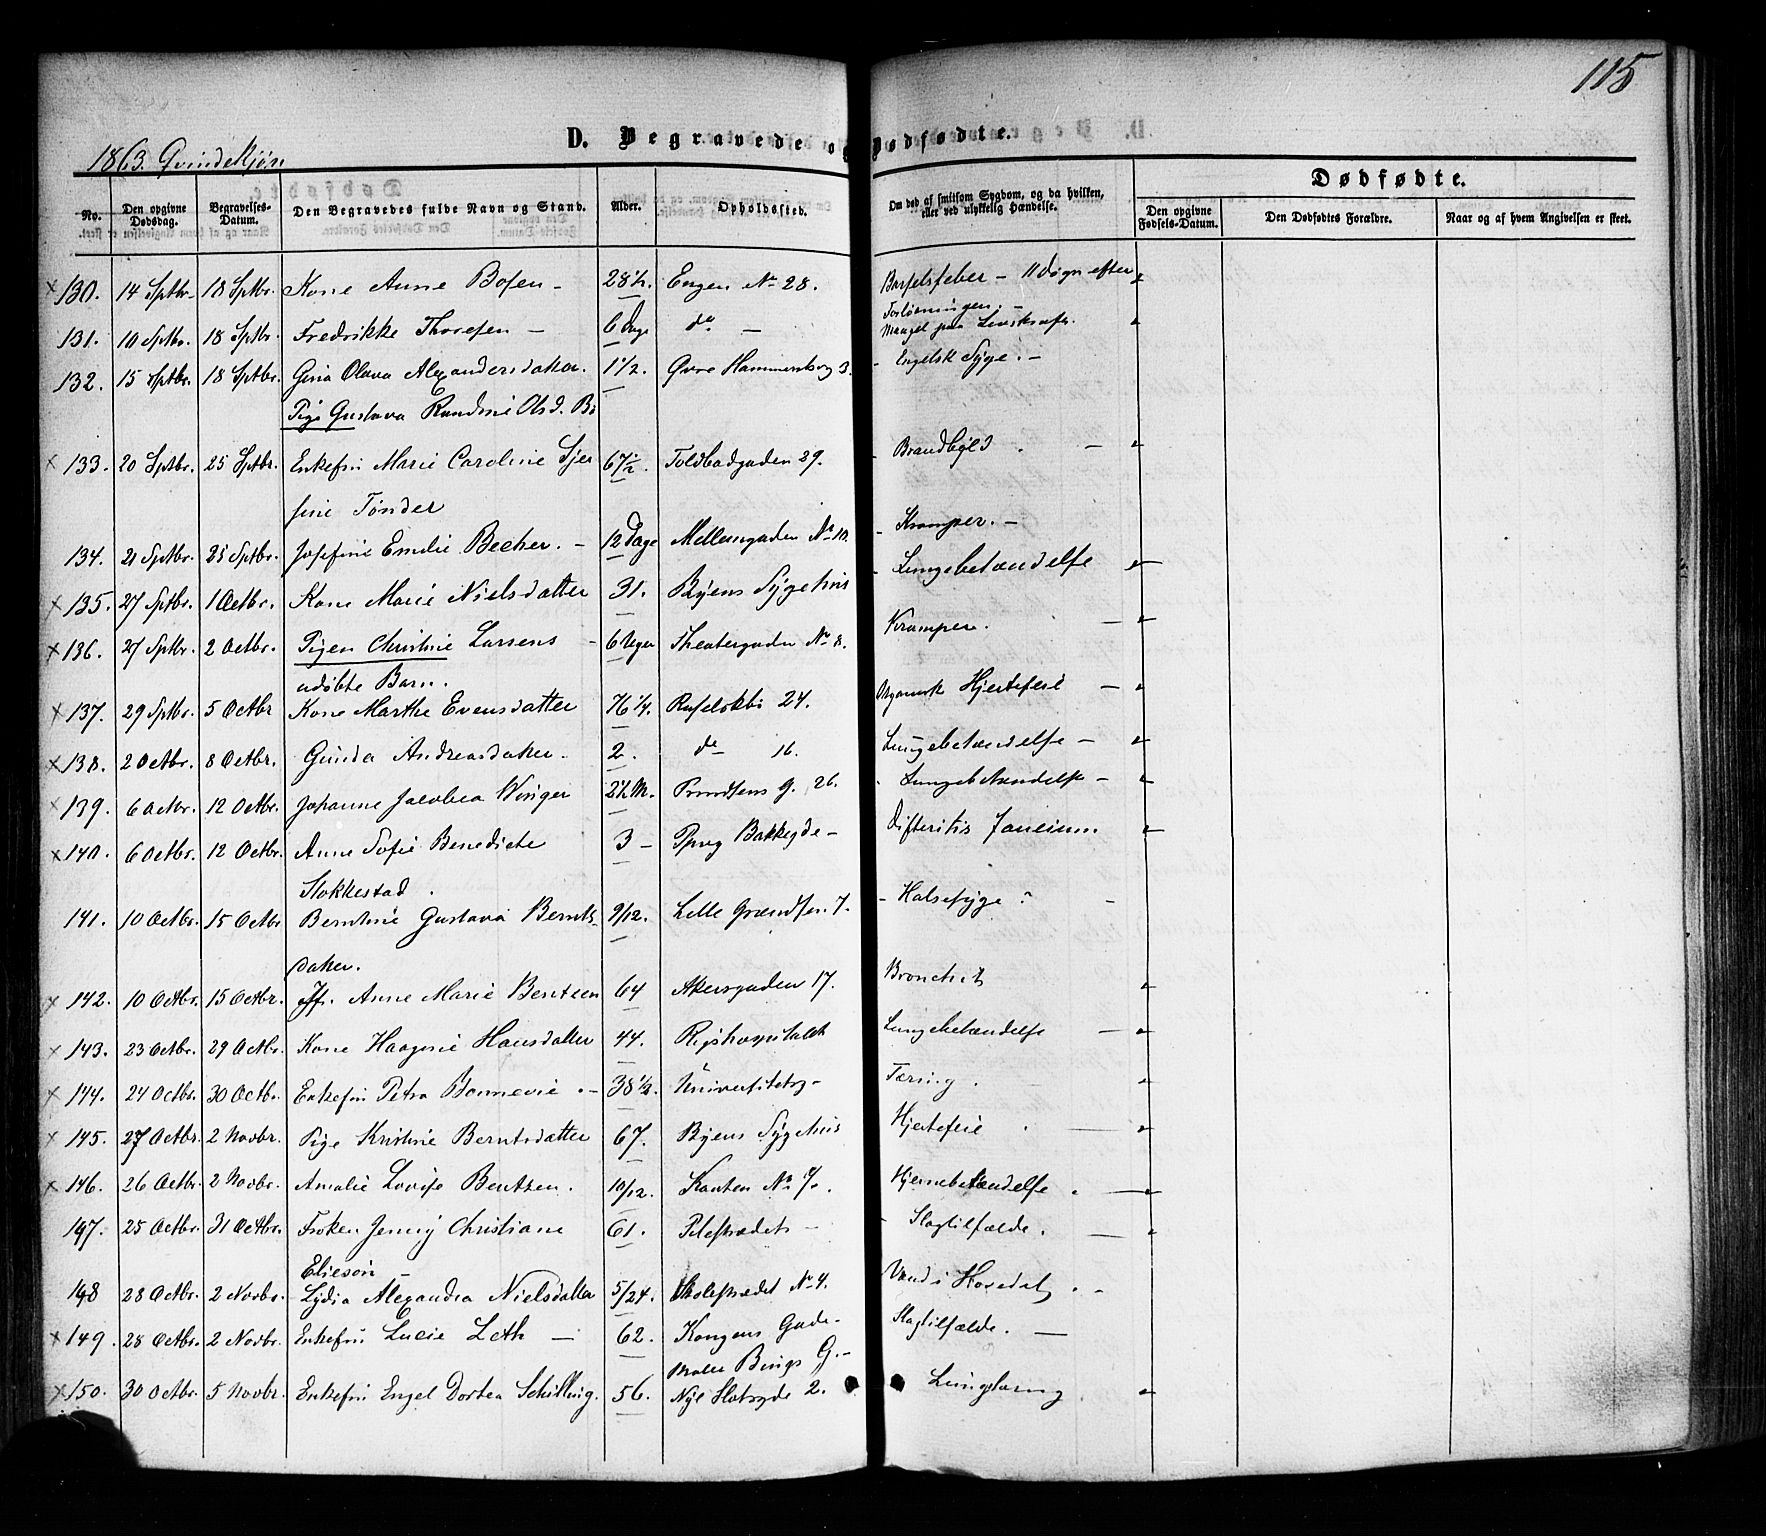 115
D. Begravede og Dødfødte.
1863. Qvindekjøn
Dødfødte.
No. Den opgivne Dødsdag. Begravelses-Datum. Den Begravedes fulde Navn og Stand. Alder. Opholdssted. Om død af smitsom Sygdom, og da hvilken, eller ved ulykkelig Hændelse. Den opgivne Fødsels-Datum. Den Dødfødtes Forældre. Naar og af hvem Angivelsen er skeet.
× 130. 14 Sptbr. 18 Sptbr. Kone Anne Bosen - 28 ½. Engen No 28. Barselsfeber - 11 Døgn efter
Forløsningen. -
131. 10 Sptbr. 18 Sptbr. Fredrikke Thoresen - 6 Dage do - Mangel paa Livskraft.
132. 15 Sptbr. 18 Sptbr. Gina Olava Alexandersdatter. 1 ½. Øvre Hammersborg 3. Engelsk Syge. -
Pige Gustava Randine Olsd. Bø
× 133. 20 Sptbr. 25 Sptbr. Enkefru Marie Caroline 67 ½. Toldbodgaden 29. Brandbyld. -
Tønder
134. 21 Sptbr. 25 Sptbr. Josefine Emilie Becher. - 12 Dage Mellemgaden No 10. Kramper. -
× 135. 27 Sptbr. 1 Octbr. Kone Marie Nielsdatter 31. Byens Sygehus Lungebetændelse
× 136. 27 Sptbr. 2 Octbr. Pigen Christine Larsens - 6 Uger Theatergaden No 8. Kramper. -
udøbte Barn.
× 137. 29 Sptbr. 5 Octbr Kone Marthe Evensdatter 76 ¼. Ruseløkbk 24. Organisk Hjertefeil -
× 138. 2 Octbr. 8 Octbr. Gunda Andreasdatter. 2. do 16. Lungebetændelse -
× 139. 6 Octbr. 12 Octbr. Johanne Jacobea Winger 2 ½ M. Prindsens G. 26. Lungebetændelse -
× 140. 6 Octbr. 12 Octbr. Anne Sofie Benedicte 3 - Bakkegde - Difteritis Faucium.
Stokkestad.
141. 10 Octbr. 15 Octbr Berntine Gustava Bernts- 9/12. Lille Grændsen 7. Halsesyge. -
datter.
× 142. 10 Octbr. 15 Octbr. Jfr. Anne Marie Bentzen 64 Akersgaden 17. Bronchit
× 143. 23 Octbr. 29 Octbr. Kone Haagine Hansdatter 44. Rigshospitalet Lungebetændelse -
× 144. 24 Octbr. 30 Octbr. Enkefru Petra Bonnevie. - 38 ½. Universitetsg - Tæring.
× 145. 27 Octbr. 2 Novbr. Pige Kristine Berntsdatter 67. Byens Sygehus Hjertefeil
× 146. 26 Octbr. 2 Novbr. Amalie Lovise Bentzen. 10/12. Kanten No 7. Hjernebetændelse. -
147. 25 Octbr. 31 Octbr. Frøken Jenny Christiane 61. Pilestrædet - Slagtilfælde. -
Elieson -
148 28 Octbr. 2 Novbr. Lydia Alexandra Nielsdatter 5/24. Skolestrædet No 4. Vand i Hovedet. -
× 149. 28 Octbr. 2 Novbr. Enkefru Lucie Leth - 62. Kongens Gade. Slagtilfælde. -
Maller Bings G. -
× 150. 30 Octbr. 5 Novbr. Enkefru Engel Dortea Schilling. 56. Nye Slotsgde 2. Lungetæring